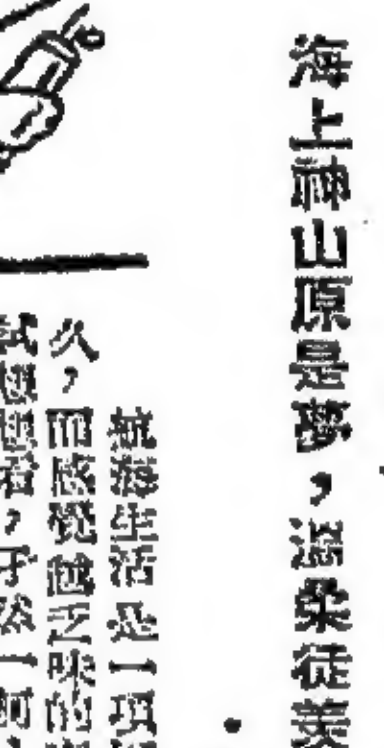 海上神山原是夢，溫柔徒羨
航海生活是一項
久，而感覺他乏味的
試想想看，孑然一